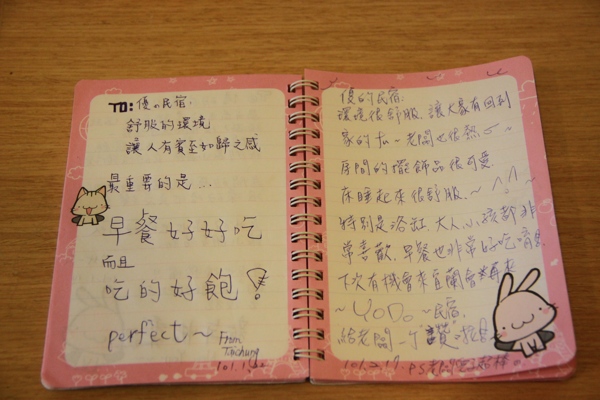 TO: 優の民宿.
舒服的環境
讓人有賓至如歸之感
最重要的是...
早餐好好吃
而且
吃的好飽!
perfect~
From Taichung
優的民宿.
環境很舒服.讓大家有回到
家的 老闆也很
房間的擺飾品很可愛.
床睡起來很舒服.~ ^.^ ~
特別是浴缸.大人.小孩都非
常喜歡.早餐也非常好吃
下次有機會來宜蘭會再來
~YoDo~民宿.
給老闆一个"讚"
101.2.17. P.S